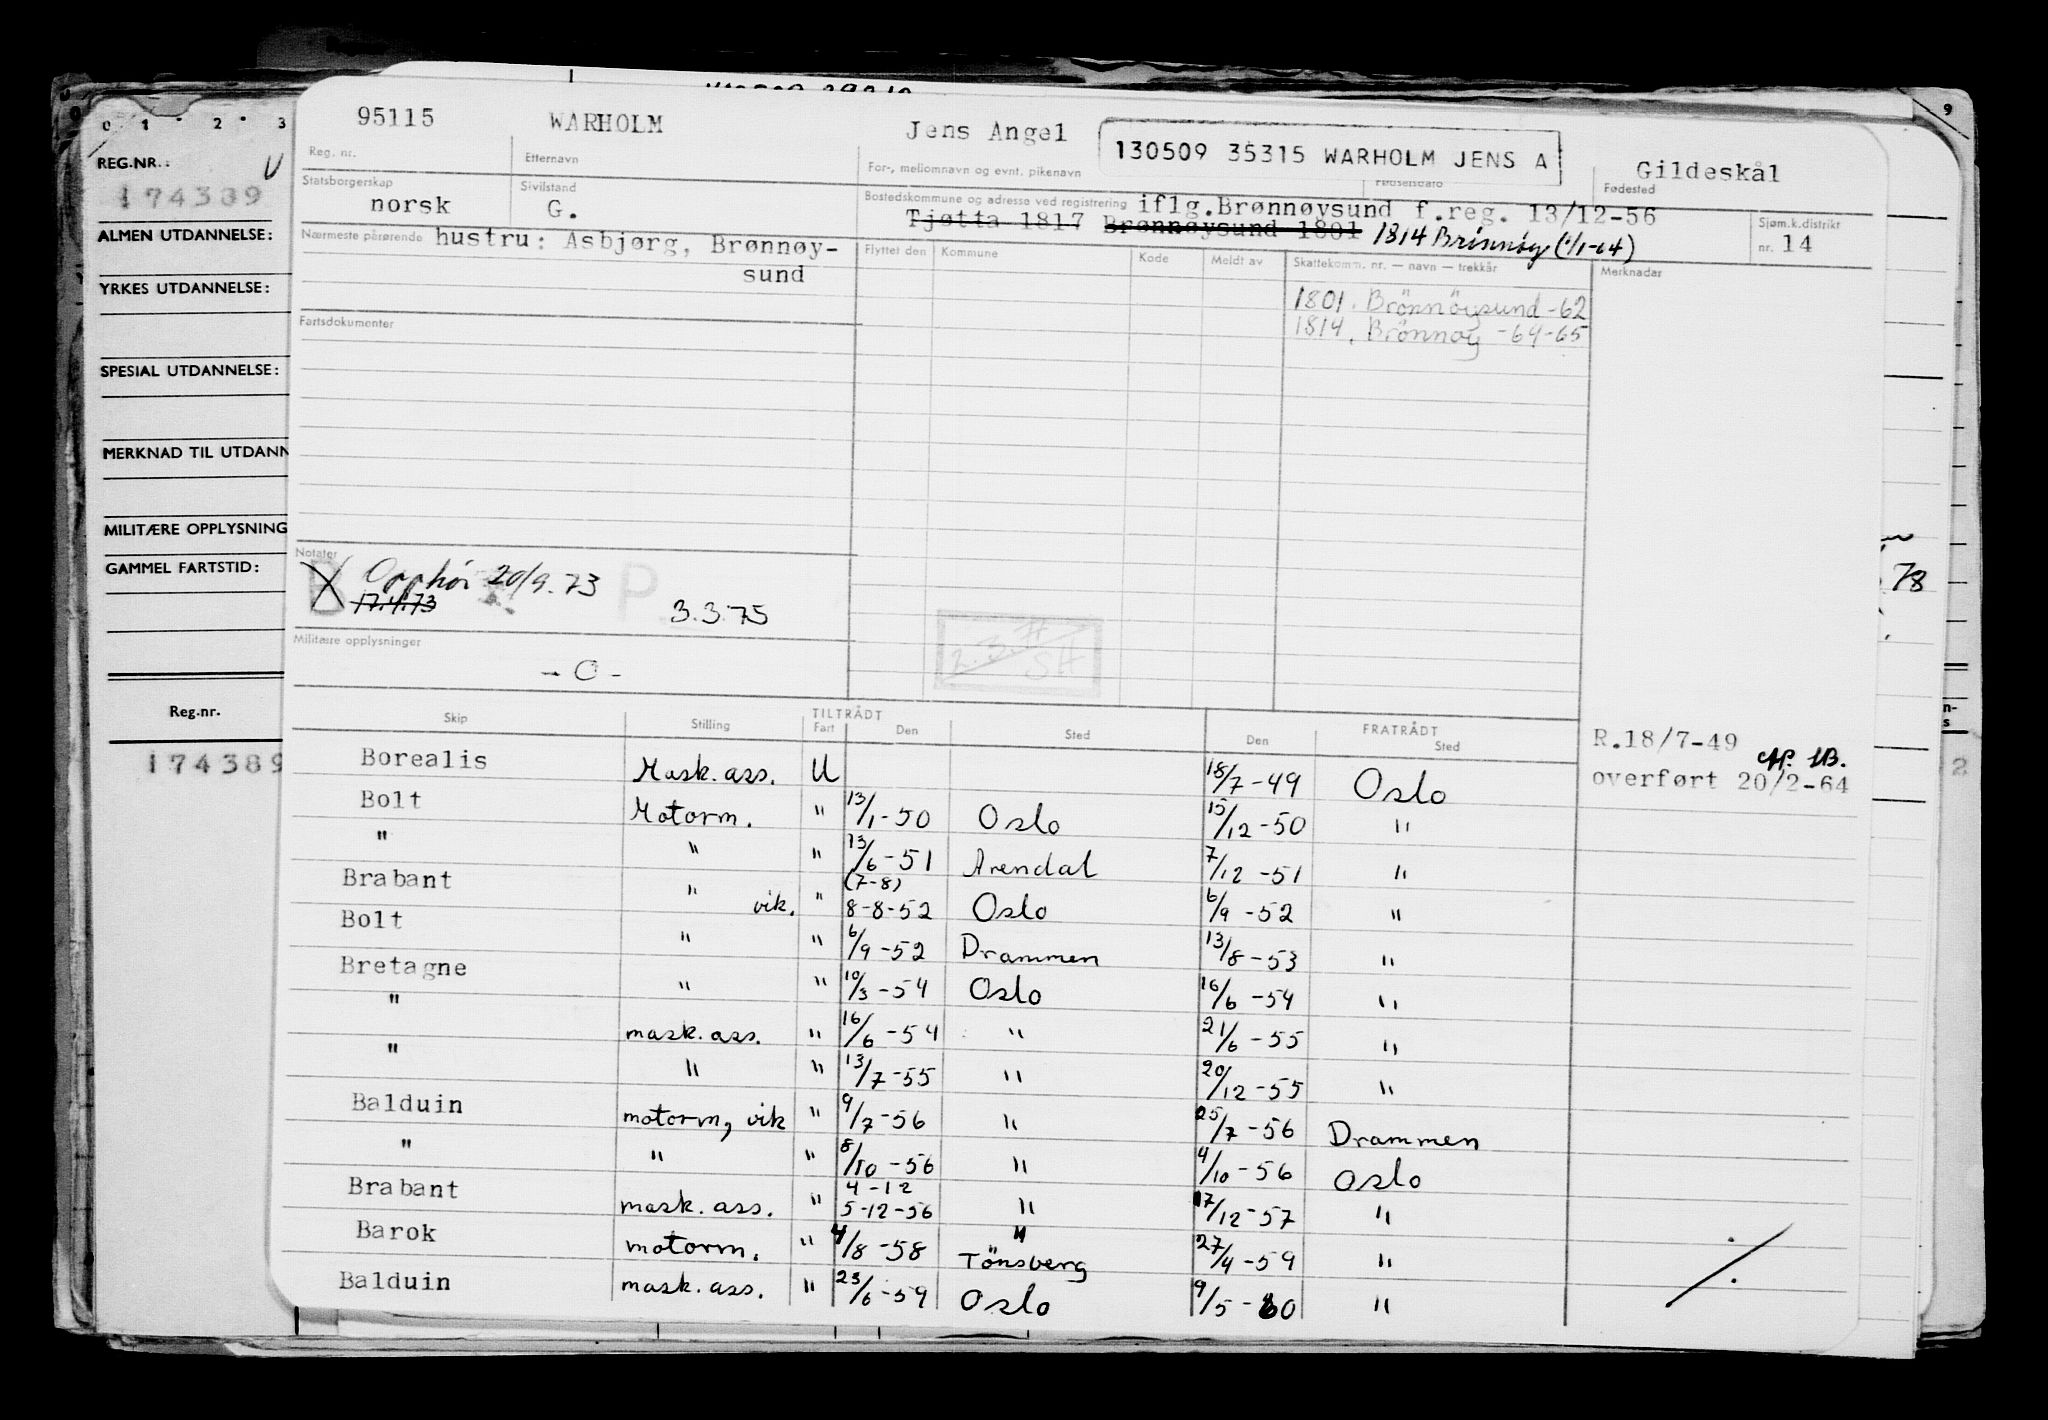 0 1 2 3
9
REG.NR.: U
174389
ALMEN UTDANNELSE:
YRKES UTDANNELSE:
SPESIAL UTDANNELSE:
MERKNAD TIL UTDANN
MILITÆRE OPPLYSNING
GAMMEL FARTSTID:
Reg.nr.
174389
78
n-
s
2
95115 WARHOLM Jens Angel 130509 35315 WARHOLM JENS A Gildeskål
Reg. nr. Etternavn For-, mellomnavn og evnt. pikenavn Fødselsdato Fødested
Statsborgerskap Sivilstand Bostedskommune og adresse ved registrering iflg.Brønnøysund f.reg. 13/12-56
norsk G. Tjøtta 1817 Brønnøysund 1801 1814 Brönnöy (1/1-64) Sjøm.k.distrikt nr. 14
Nærmeste pårørende hustru: Asbjørg, Brønnøy-
sund
Flyttet den Kommune Kode Meldt av Skattekomm. nr. — navn — trekkår Merknader
1801. Brönnöysund -62
1814. Brönnöy -64-65
Fartsdokumenter
Notater
B Opphör 20/9.73 P
17.4.73 3.3.75
2.3.# SH
Militære opplysninger
- O -
Skip Stilling TILTRÅDT Fart Den Sted FRATRÅDT Den Sted
R.18/7-49
overført 20/2-64
Borealis Mask. ass. U 18/7-49 Oslo
Bolt Motorm. " 13/1-50 Oslo 15/12-50 "
" " " 13/6-51 Arendal 7/12-51 "
Brabant " vik. " (7-8) 8-8-52 Oslo 6/9-52 "
Bolt " " 6/9-52 Drammen 13/8-53 "
Bretagne " " 10/3-54 Oslo 16/6-54 "
" mask. ass. " 16/6-54 " 21/6-55 "
" " " 13/7-55 " 20/12-55 "
Balduin motorm, vik " 9/7-56 " 25/7-56 Drammen
" " " 8/10-56 " 4/10-56 Oslo
Brabant mask. ass. " 4-12 5-12-56 " 17/12-57 "
Barok motorm. " 4/8-58 " Tönsberg 27/4-59 "
Balduin mask. ass. " 23/6-59 Oslo 9/5-60 "